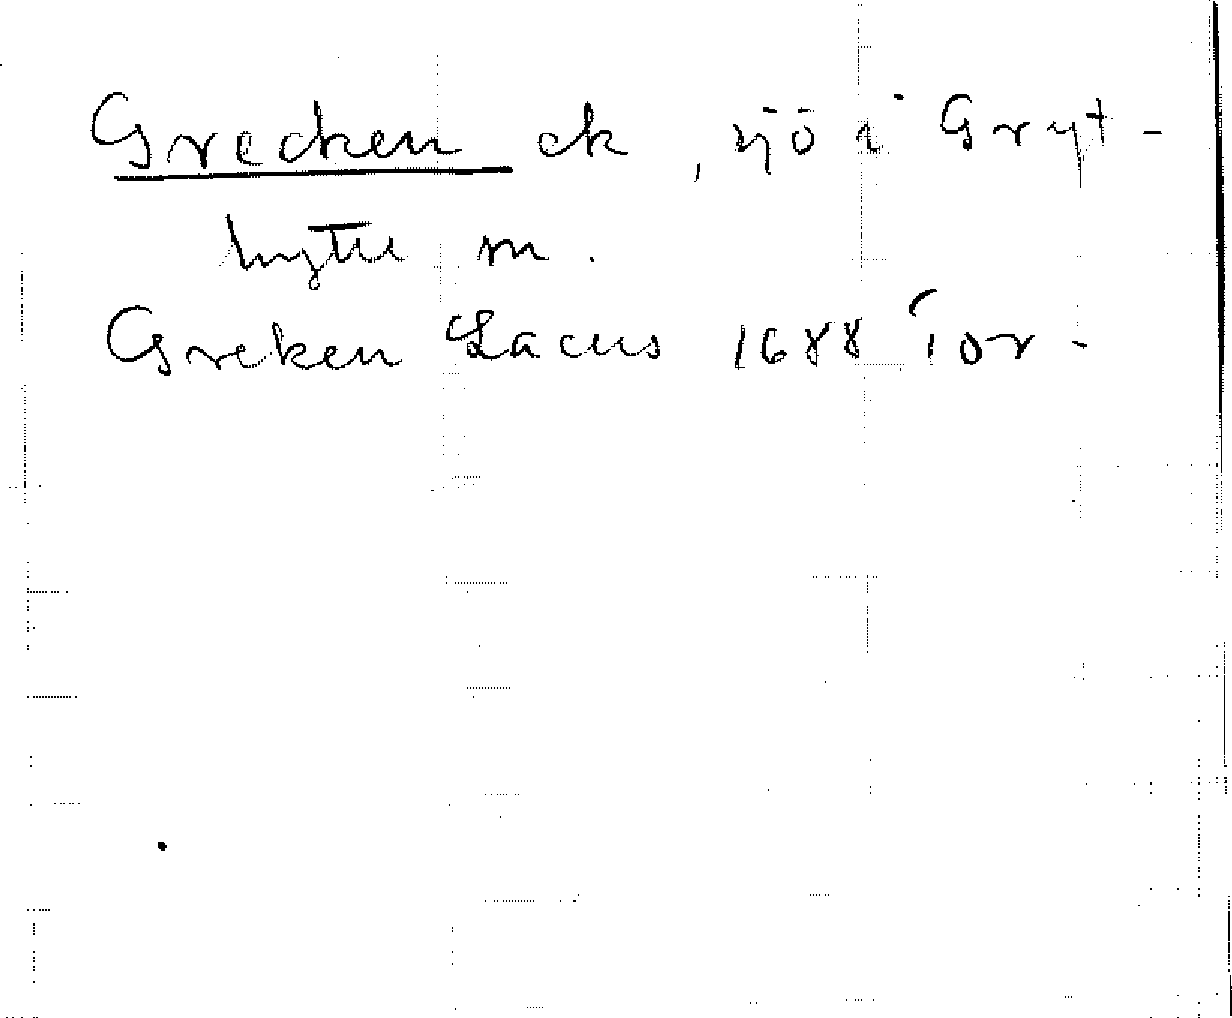 Grecken ek, sjö i Gryt-
hytte sn.
Greken Lacus 1688 ior-